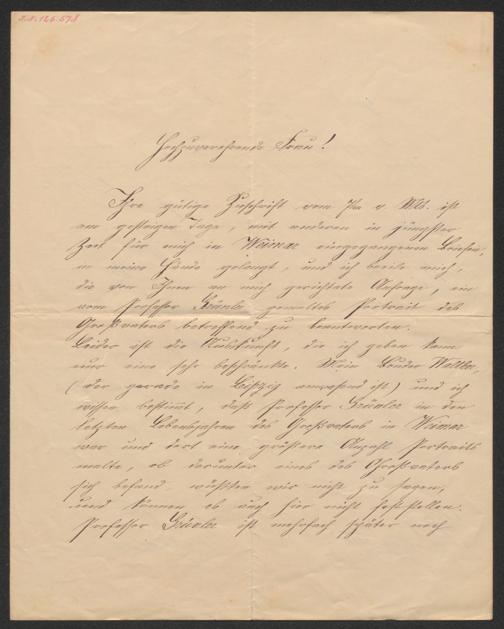 I.N. 126.578
Hochzuverehrende Frau!
Ihre gütige Zuschrift vom 7ten v. Mts. ist
am gestrigen Tage, mit anderen in jüngster
Zeit für mich in Weimar eingegangenen Briefen,
in meine Hände gelangt, und ich beeile mich,
die von Ihnen an mich gerichtete Anfrage, ein
vom Professor gemaltes Portrait des
Großvaters betreffend zu beantworten.
Leider ist die Auskunft, die ich geben kann
nur eine sehr beschränkte. Mein Bruder Walther,
(der gerade in Leipzig anwesend ist) und ich
wissen bestimmt, daß Professor in den
letzten Lebensjahren des Großvaters in Weimar
war und dort eine größere Anzahl Portraits
malte, ob darunter eines des Großvaters
sich befand wüßten wir nicht zu sagen,
und können es auch hier nicht feststellen.
Professor ist mehrfach später noch